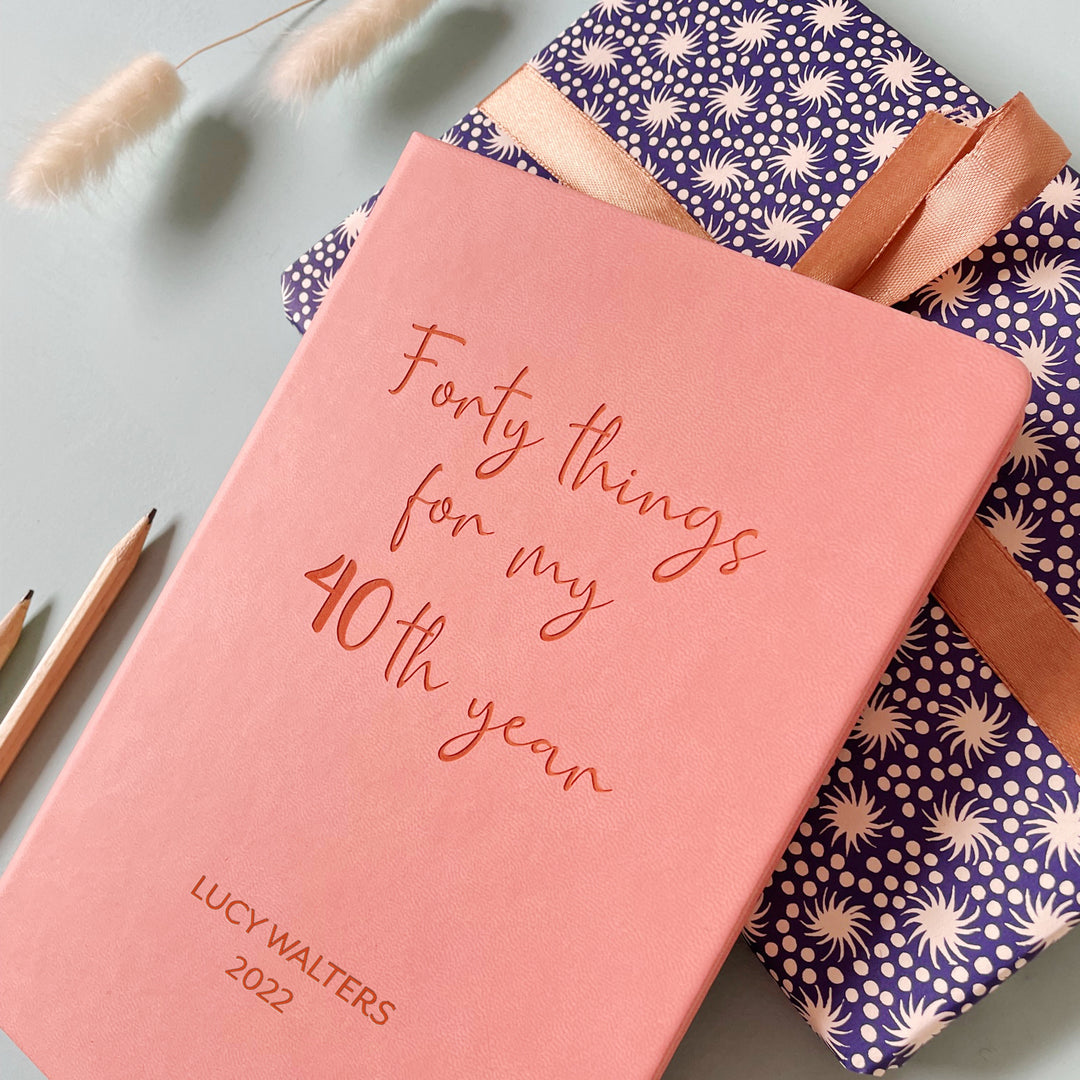 Forty things
for my
40th year
LUCY WALTERS
2022